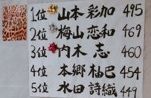 1位 山本 彩加 495
2位 梅山 恋和 469
3位 内木 志 460
4位 本郷 柚巴 454
5位 水田 詩織 449